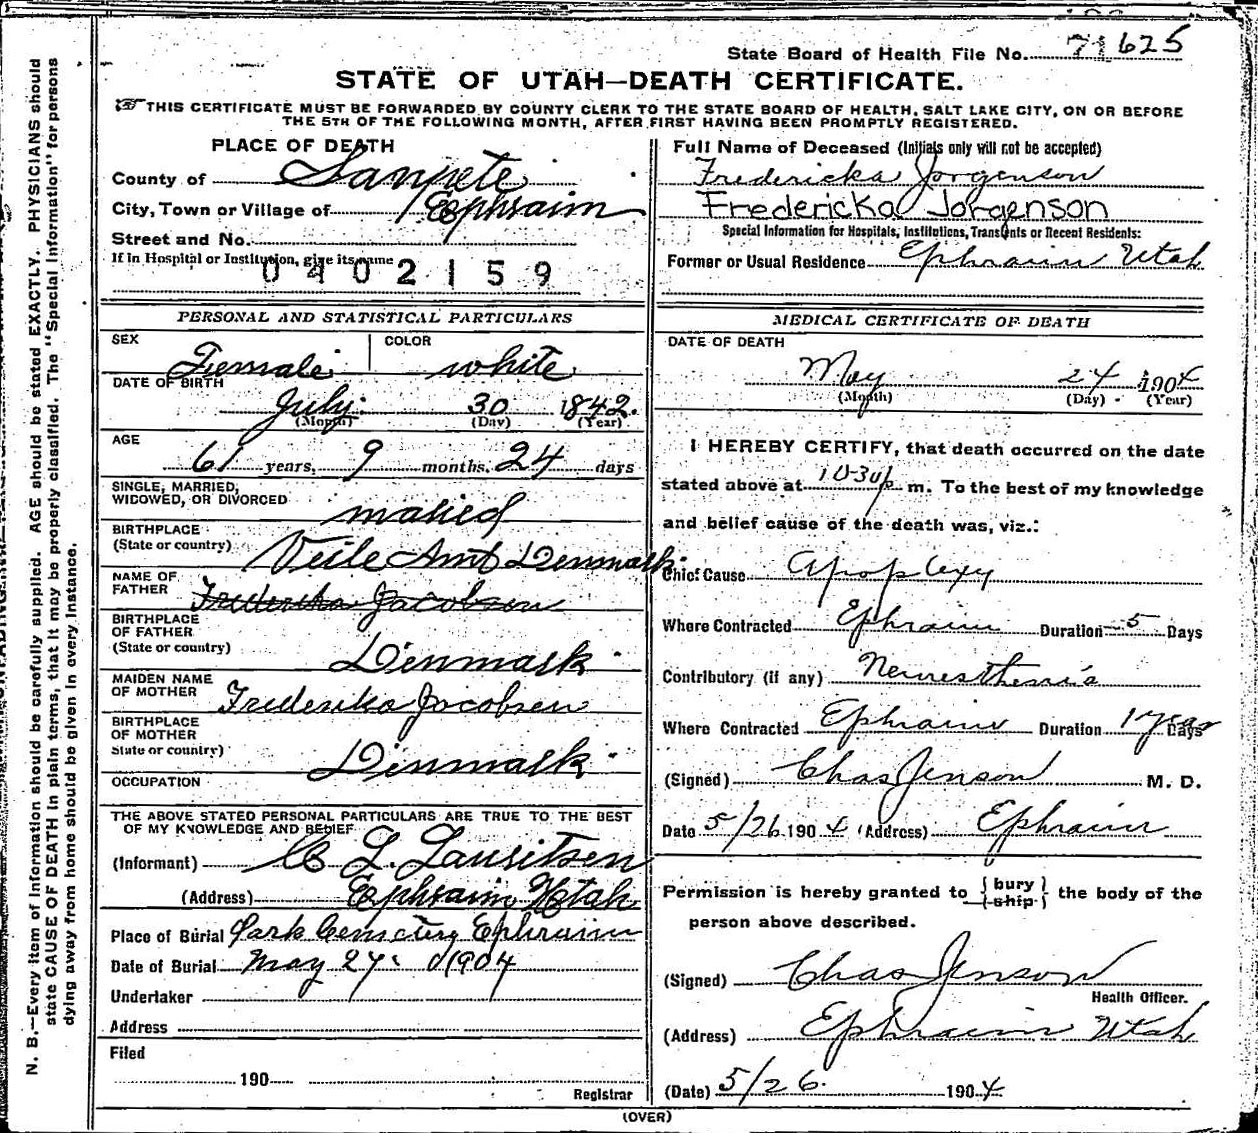 State Board of Health File No. 71625
STATE OF UTAH—DEATH CERTIFICATE.
THIS CERTIFICATE MUST BE FORWARDED BY COUNTY CLERK TO THE STATE BOARD OF HEALTH, SALT LAKE CITY, ON OR BEFORE
THE 5TH OF THE FOLLOWING MONTH, AFTER FIRST HAVING BEEN PROMPTLY REGISTERED.
N. B.—Every item of information should be carefully supplied. AGE should be stated EXACTLY. PHYSICIANS should
state CAUSE OF DEATH in plain terms, that it may be properly classified. The "Special Information" for persons
dying away from home should be given in every instance.
PLACE OF DEATH
County of Sanpete
City, Town or Village of Ephraim
Street and No.
If in Hospital or Institution, give its name
0402159
PERSONAL AND STATISTICAL PARTICULARS
SEX Female COLOR white
DATE OF BIRTH
July 30 1842.
(Month) (Day) (Year)
AGE
61 years, 9 months. 24 days
SINGLE, MARRIED,
WIDOWED, OR DIVORCED
maried
BIRTHPLACE
(State or country) Veile Amt Denmark
NAME OF
FATHER Frederika Jacobsen
BIRTHPLACE
OF FATHER
(State or country) Denmark
MAIDEN NAME
OF MOTHER Frederika Jacobsen
BIRTHPLACE
OF MOTHER
State or country) Denmark
OCCUPATION
THE ABOVE STATED PERSONAL PARTICULARS ARE TRUE TO THE BEST
OF MY KNOWLEDGE AND BELIEF
(Informant) L. Lauritsen
(Address) Ephraim Utah
Place of Burial Park Cemetery Ephraim
Date of Burial May 27 1904
Undertaker
Address
Filed
190
Registrar
Full Name of Deceased (Initials only will not be accepted)
Fredericka Jorgenson
Fredericka Jorgenson
Special Information for Hospitals, Institutions, Transients or Recent Residents:
Former or Usual Residence Ephraim Utah
MEDICAL CERTIFICATE OF DEATH
DATE OF DEATH
May 24 1904
(Month) (Day) (Year)
I HEREBY CERTIFY, that death occurred on the date
stated above at 10-30 p m. To the best of my knowledge
and belief cause of the death was, viz.:
Chief Cause Apoplexy
Where Contracted Ephraim Duration 5 Days
Contributory (if any)
Where Contracted Ephraim Duration 1 year Days
(Signed) Chas Jenson M. D.
Date 5/26 1904 (Address) Ephraim
Permission is hereby granted to {bury / ship} the body of the
person above described.
(Signed) Chas Jenson
Health Officer.
(Address) Ephraim Utah
(Date) 5/26. 1904
(OVER)